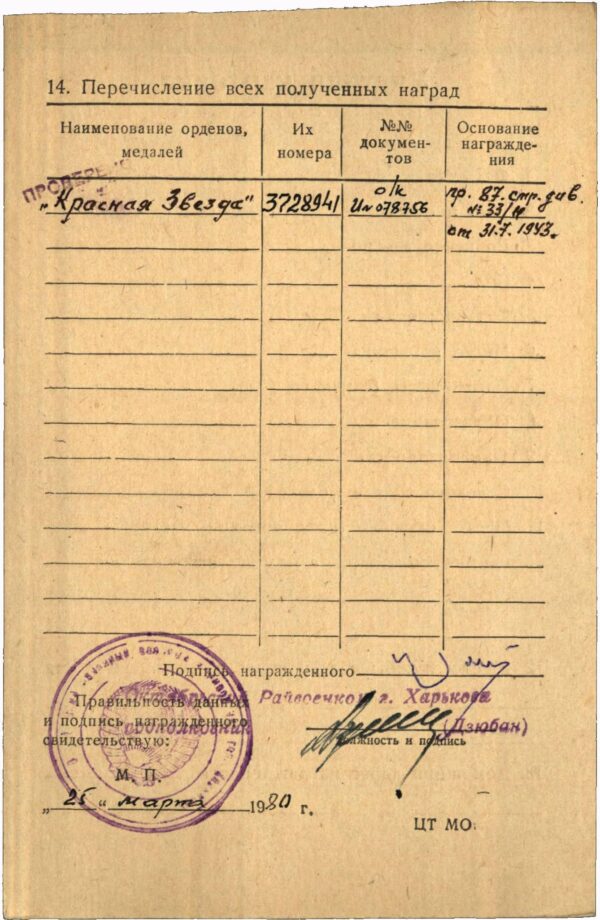 14. Перечисление всех полученных наград
Наименование орденов, медалей
Их номера
№№ докумен-
тов
Основание
награжде-
ния
„Красная Звезда"
3728941
о/к
И№078756
пр. 87. стр. див.
№ 33/н
от 31.7.1943.
Подпись награжденного
Правильность данных
и подпись награжденного
свидетельствую:
Октябрьский Райвоенком г. Харькова
подполковник
(Дзюбан)
должность и подпись
М. П.
„25" марта 1980 г.
ЦТ МО.